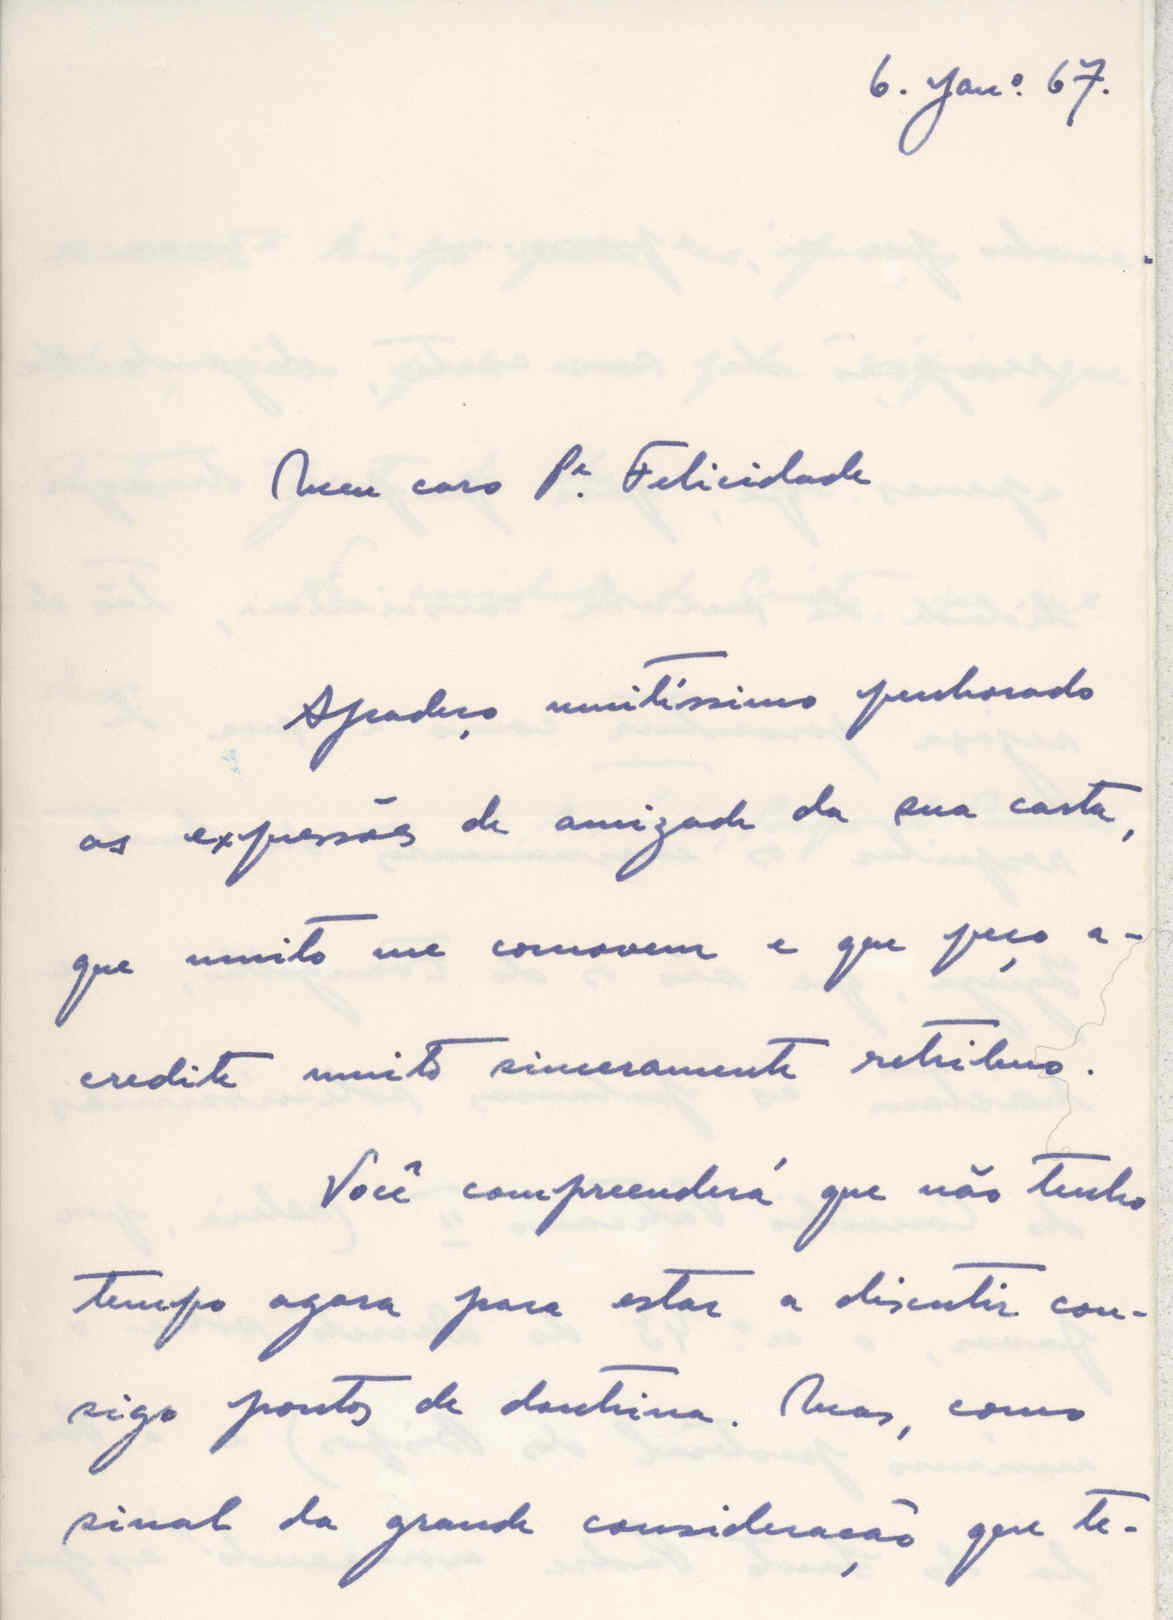 6. Janº. 67.
Meu caro Pe. Felicidade
Agradeço muitíssimo penhorado
as expressões de amizade da sua carta,
que muito me comovem e que peço a-
credite muito sinceramente retribuo.
Você compreenderá que não tenho
tempo agora para estar a discutir con-
sigo pontos de doutrina. Mas, como
sinal da grande consideração que te-